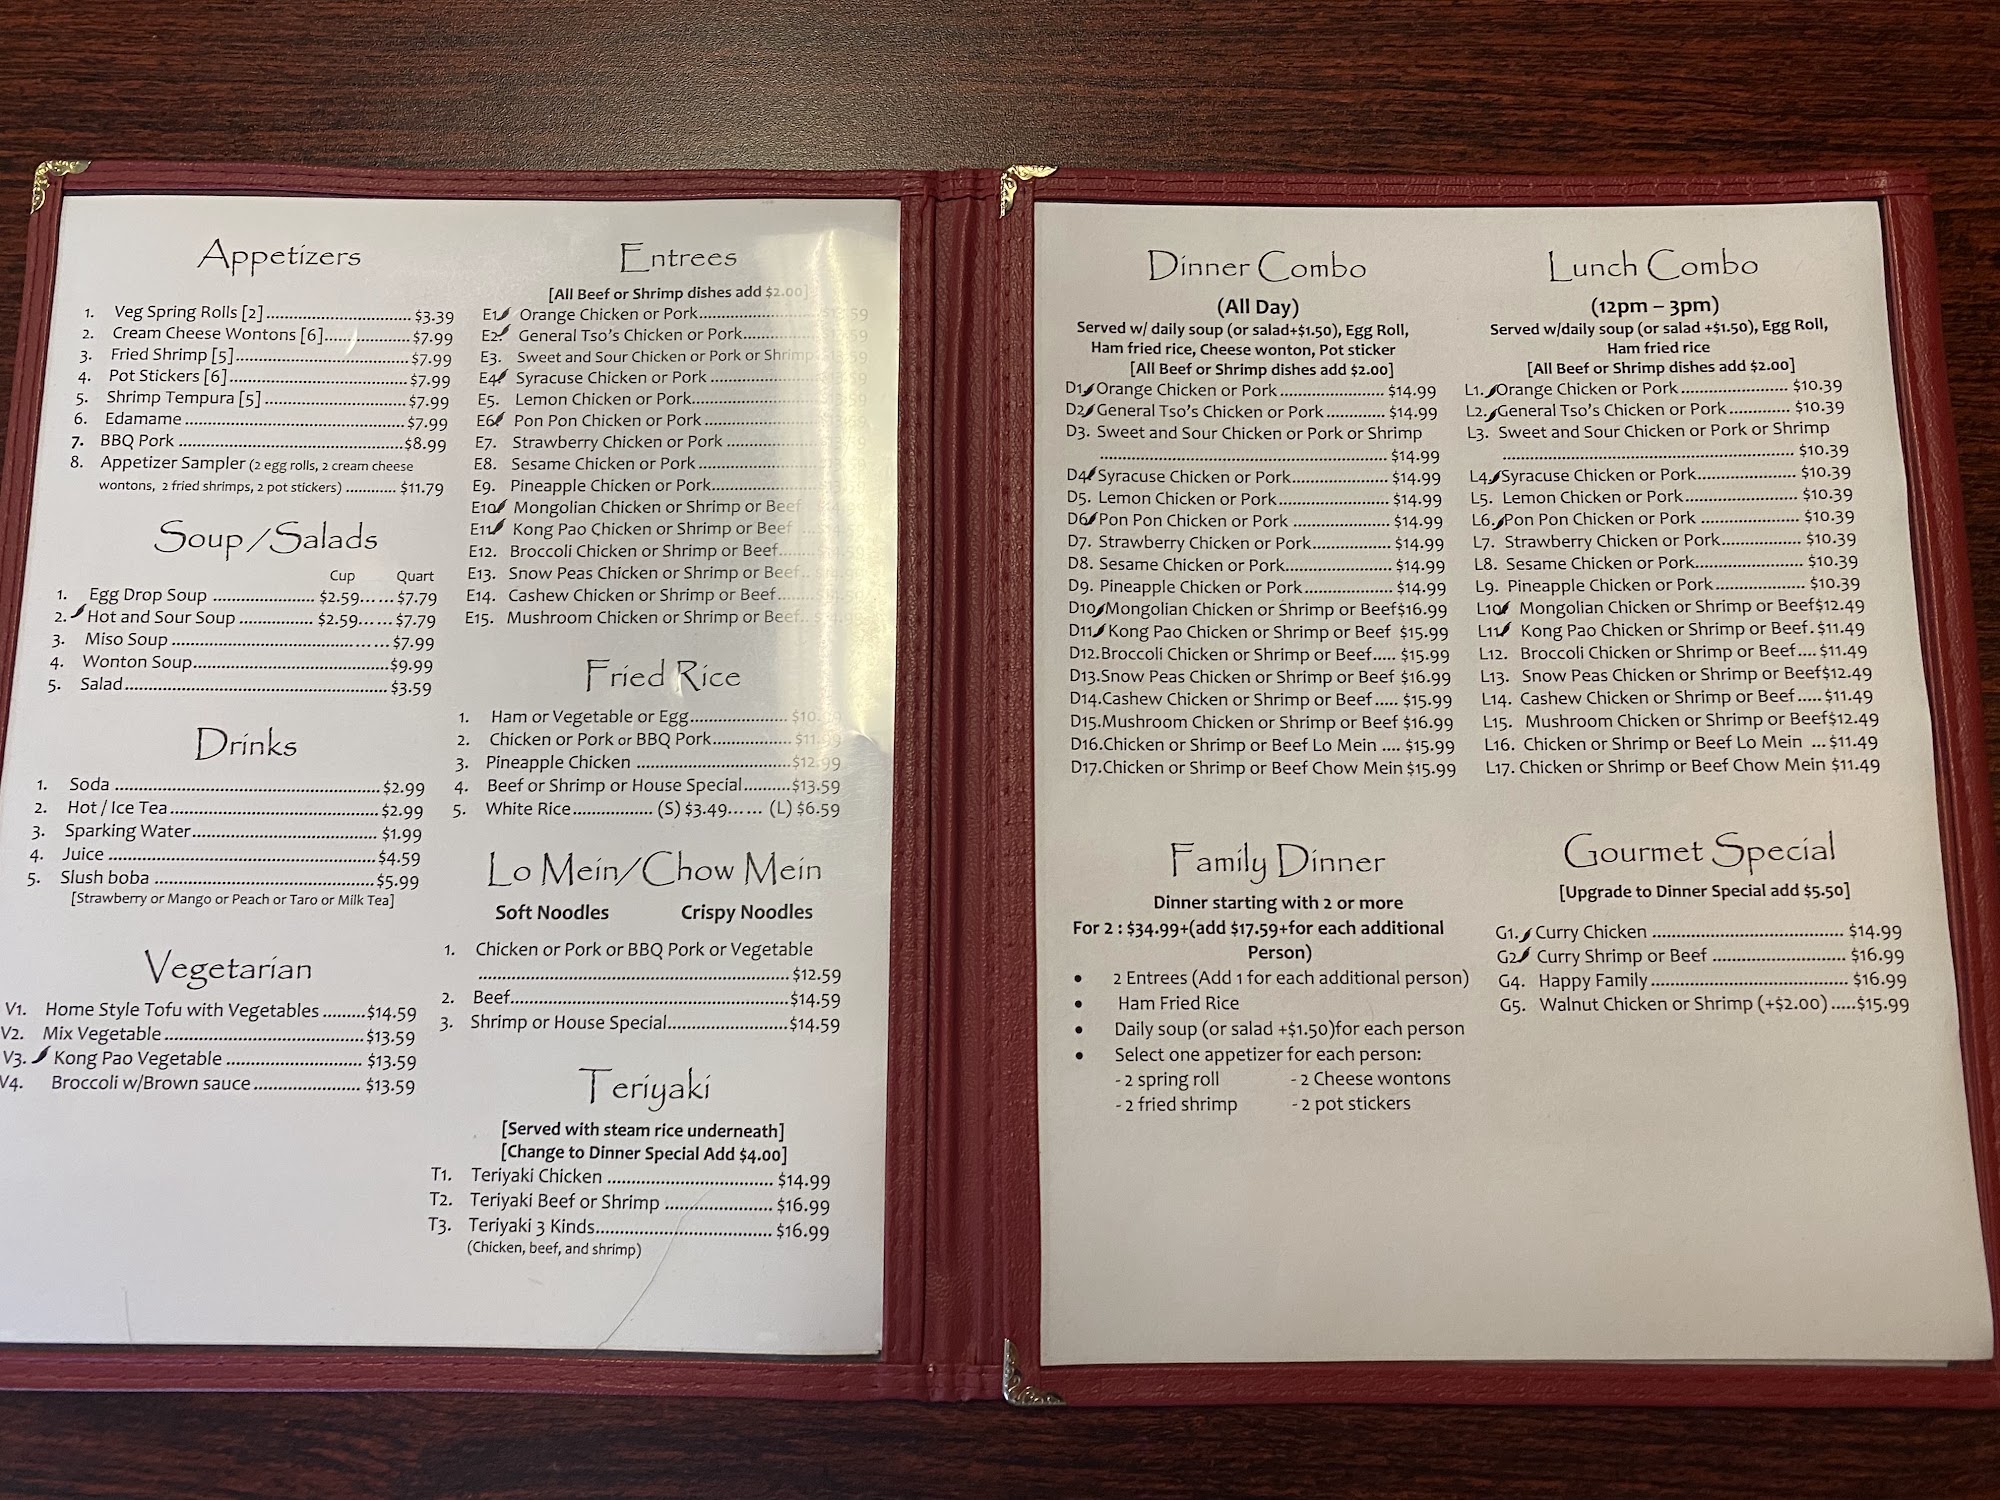 Appetizers
1. Veg Spring Rolls [2]................................$3.39
2. Cream Cheese Wontons [6]...................$7.99
3. Fried Shrimp [5].......................................$7.99
4. Pot Stickers [6]........................................$7.99
5. Shrimp Tempura [5]................................$7.99
6. Edamame ..................................................$7.99
7. BBQ Pork ...................................................$8.99
8. Appetizer Sampler (2 egg rolls, 2 cream cheese
wontons, 2 fried shrimps, 2 pot stickers) ............$11.79
Soup/Salads
Cup Quart
1. Egg Drop Soup .......................$2.59......$7.79
2. Hot and Sour Soup .................$2.59......$7.79
3. Miso Soup ................................................$7.99
4. Wonton Soup............................................$9.99
5. Salad...........................................................$3.59
Drinks
1. Soda ............................................................$2.99
2. Hot / Ice Tea...............................................$2.99
3. Sparking Water.......................................... $1.99
4. Juice ............................................................$4.59
5. Slush boba .................................................$5.99
[Strawberry or Mango or Peach or Taro or Milk Tea]
Vegetarian
V1. Home Style Tofu with Vegetables .........$14.59
V2. Mix Vegetable..............................................$13.59
V3. Kong Pao Vegetable ............................... $13.59
V4. Broccoli w/Brown sauce........................ $13.59
Entrees
[All Beef or Shrimp dishes add $2.00]
E1. Orange Chicken or Pork
E2. General Tso's Chicken or Pork
E3. Sweet and Sour Chicken or Pork or Shrimp
E4. Syracuse Chicken or Pork
E5. Lemon Chicken or Pork
E6. Pon Pon Chicken or Pork
E7. Strawberry Chicken or Pork
E8. Sesame Chicken or Pork
E9. Pineapple Chicken or Pork
E10. Mongolian Chicken or Shrimp or Beef
E11. Kong Pao Chicken or Shrimp or Beef
E12. Broccoli Chicken or Shrimp or Beef
E13. Snow Peas Chicken or Shrimp or Beef
E14. Cashew Chicken or Shrimp or Beef
E15. Mushroom Chicken or Shrimp or Beef
Fried Rice
1. Ham or Vegetable or Egg
2. Chicken or Pork or BBQ Pork
3. Pineapple Chicken ...............................$12.99
4. Beef or Shrimp or House Special..........$13.59
5. White Rice................ (S) $3.49...... (L) $6.59
Lo Mein/Chow Mein
Soft Noodles Crispy Noodles
1. Chicken or Pork or BBQ Pork or Vegetable
..................................................................... $12.59
2. Beef..............................................................$14.59
3. Shrimp or House Special...........................$14.59
Teriyaki
[Served with steam rice underneath]
[Change to Dinner Special Add $4.00]
T1. Teriyaki Chicken .................................... $14.99
T2. Teriyaki Beef or Shrimp ....................... $16.99
T3. Teriyaki 3 Kinds...................................... $16.99
(Chicken, beef, and shrimp)
Dinner Combo
(All Day)
Served w/ daily soup (or salad+$1.50), Egg Roll,
Ham fried rice, Cheese wonton, Pot sticker
[All Beef or Shrimp dishes add $2.00]
D1. Orange Chicken or Pork ...................... $14.99
D2. General Tso's Chicken or Pork ............ $14.99
D3. Sweet and Sour Chicken or Pork or Shrimp
............................................................... $14.99
D4. Syracuse Chicken or Pork..................... $14.99
D5. Lemon Chicken or Pork........................ $14.99
D6. Pon Pon Chicken or Pork ..................... $14.99
D7. Strawberry Chicken or Pork................. $14.99
D8. Sesame Chicken or Pork....................... $14.99
D9. Pineapple Chicken or Pork................... $14.99
D10. Mongolian Chicken or Shrimp or Beef$16.99
D11. Kong Pao Chicken or Shrimp or Beef $15.99
D12.Broccoli Chicken or Shrimp or Beef..... $15.99
D13.Snow Peas Chicken or Shrimp or Beef $16.99
D14.Cashew Chicken or Shrimp or Beef ..... $15.99
D15.Mushroom Chicken or Shrimp or Beef $16.99
D16.Chicken or Shrimp or Beef Lo Mein .... $15.99
D17.Chicken or Shrimp or Beef Chow Mein $15.99
Family Dinner
Dinner starting with 2 or more
For 2 : $34.99+(add $17.59+for each additional
Person)
• 2 Entrees (Add 1 for each additional person)
• Ham Fried Rice
• Daily soup (or salad +$1.50)for each person
• Select one appetizer for each person:
- 2 spring roll - 2 Cheese wontons
- 2 fried shrimp - 2 pot stickers
Lunch Combo
(12pm – 3pm)
Served w/daily soup (or salad +$1.50), Egg Roll,
Ham fried rice
[All Beef or Shrimp dishes add $2.00]
L1. Orange Chicken or Pork....................... $10.39
L2. General Tso's Chicken or Pork............ $10.39
L3. Sweet and Sour Chicken or Pork or Shrimp
................................................................ $10.39
L4. Syracuse Chicken or Pork..................... $10.39
L5. Lemon Chicken or Pork........................ $10.39
L6. Pon Pon Chicken or Pork .................... $10.39
L7. Strawberry Chicken or Pork................. $10.39
L8. Sesame Chicken or Pork....................... $10.39
L9. Pineapple Chicken or Pork................... $10.39
L10. Mongolian Chicken or Shrimp or Beef$12.49
L11. Kong Pao Chicken or Shrimp or Beef.$11.49
L12. Broccoli Chicken or Shrimp or Beef.... $11.49
L13. Snow Peas Chicken or Shrimp or Beef$12.49
L14. Cashew Chicken or Shrimp or Beef ..... $11.49
L15. Mushroom Chicken or Shrimp or Beef$12.49
L16. Chicken or Shrimp or Beef Lo Mein ... $11.49
L17. Chicken or Shrimp or Beef Chow Mein $11.49
Gourmet Special
[Upgrade to Dinner Special add $5.50]
G1. Curry Chicken ........................................ $14.99
G2. Curry Shrimp or Beef ............................ $16.99
G4. Happy Family.......................................... $16.99
G5. Walnut Chicken or Shrimp (+$2.00) .....$15.99